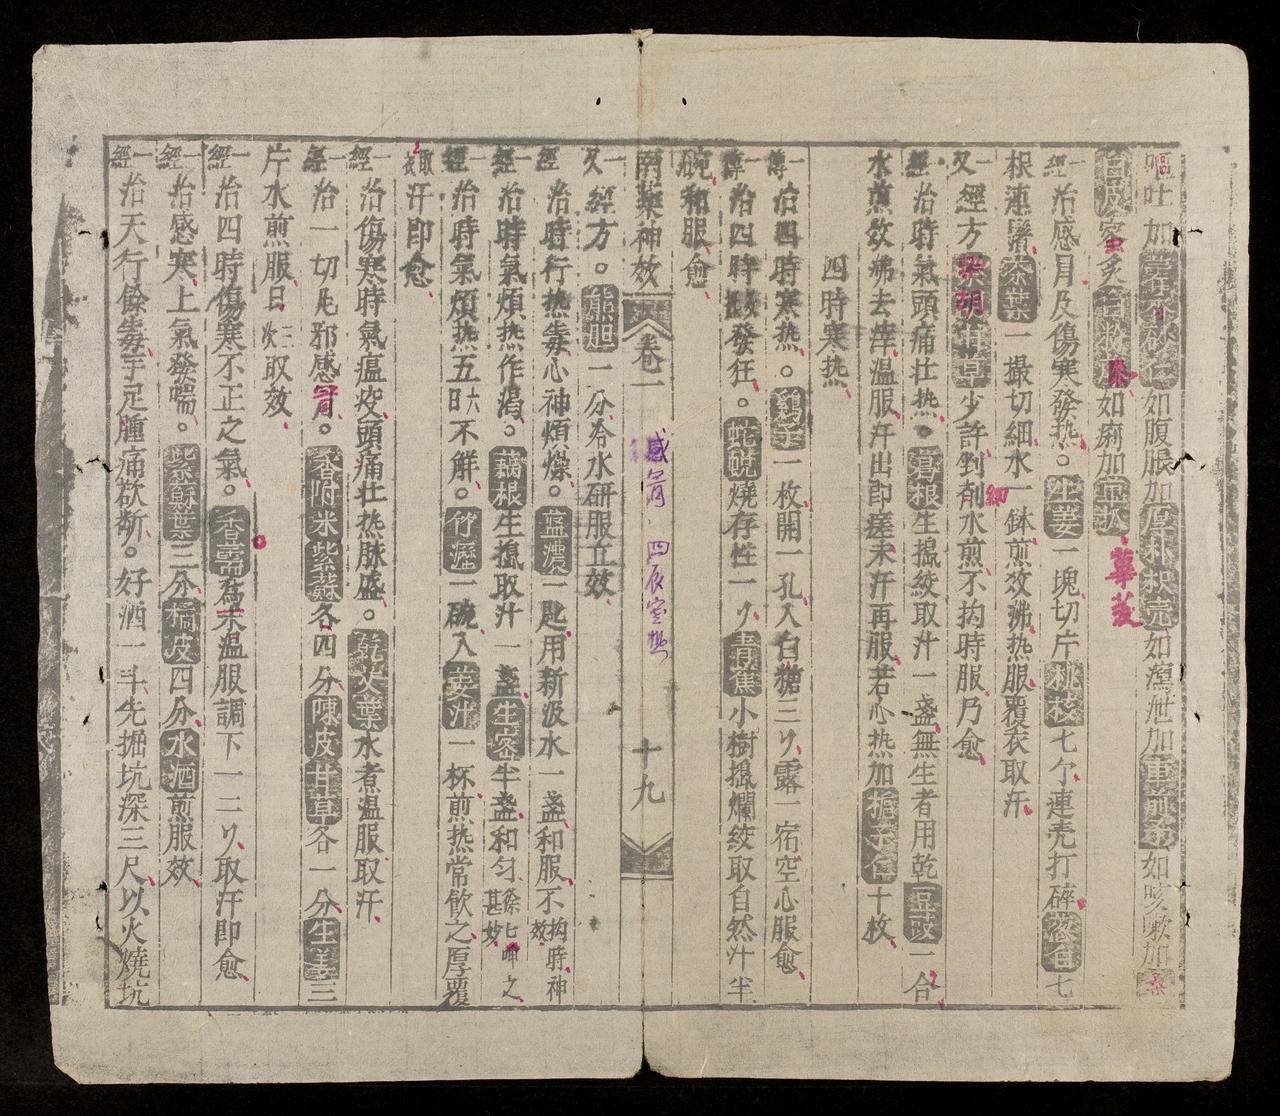 嘔吐加藿香砂仁如腹脹加厚朴枳壳如瀉泄加車前子如咳嗽加桑
白皮蜜炙如痢加
一經治感冒及傷寒發热。生姜一塊切片桃枝七个連壳打碎葱白七
根連鬚茶葉一撮切細水一鉢煎攽沸热服覆衣取汗
一又經方柴胡甘草少許剉剤水煎不拘時服乃愈
一經治時氣頭痛壮热。葛根生搗絞取汁一盏無生者用乾豆豉一合
水煎攽沸去滓温服汗出即瘥未汗再服若心热加梔子仁十枚
四時寒热
一傳治四時寒热。鷄子一枚開一孔入白糖三リ露一宿空心服愈
一傳治四時發狂。蛇蜕燒存性一リ青蕉小樹搗爛絞取自然汁半
碗和服愈
南藥神效 卷一 十九
感冒 四辰寒热
一又經方。熊胆一分冷水研服立效
一經治時行热毒心神煩燥。藍濃一匙用新汲水一盏和服不拘時神效
一經治時氣煩热作渴。藕根生搗取汁一盏生密半盏和匀徐之甚妙
一經治時氣煩热五六日不解。竹瀝一碗入姜汁一杯煎热常飲之厚覆
取衣汗即愈
一經治傷寒時氣瘟疫頭痛壮热脉盛。乾艾葉水煮温服取汗
一經治一切風邪感冒。香附米紫蘇各四分陳皮甘草各一分生姜三
片水煎服日二三次取效
一經治四時傷寒不正之氣。香薷為末温服調下一二リ取汗即愈
一經治感寒上氣發喘。紫蘇葉三分橘皮四分水酒煎服效
一經治天行餘毒手足腫痛欲断。好酒一斗先掘坑深三尺以火燒坑